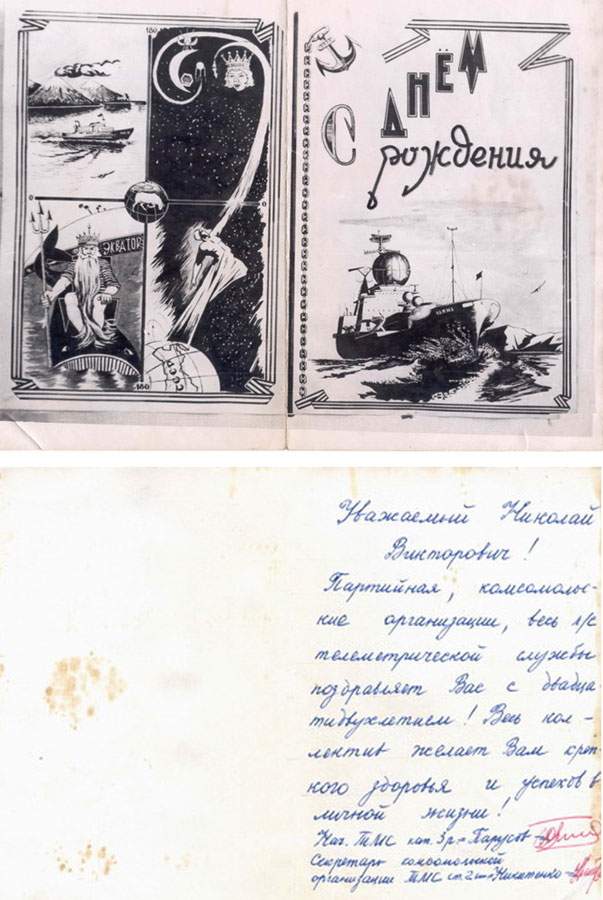 180
ЭКВАТОР
0
0
СССР
180
С ДНЁМ
рождения
Уважаемый Николай
Викторович!
Партийная, комсомоль-
кие организации, весь л/с
телеметрической службы
поздравляет Вас с двадца-
тидвухлетием! Весь кол-
лектив желает Вам креп-
кого здоровья и успехов в
личной жизни!
Нач. ТМС кап. 3 р.= Парусов
Секретарь комсомольской
организации ТМС ст. 2 ст.= Никитенко